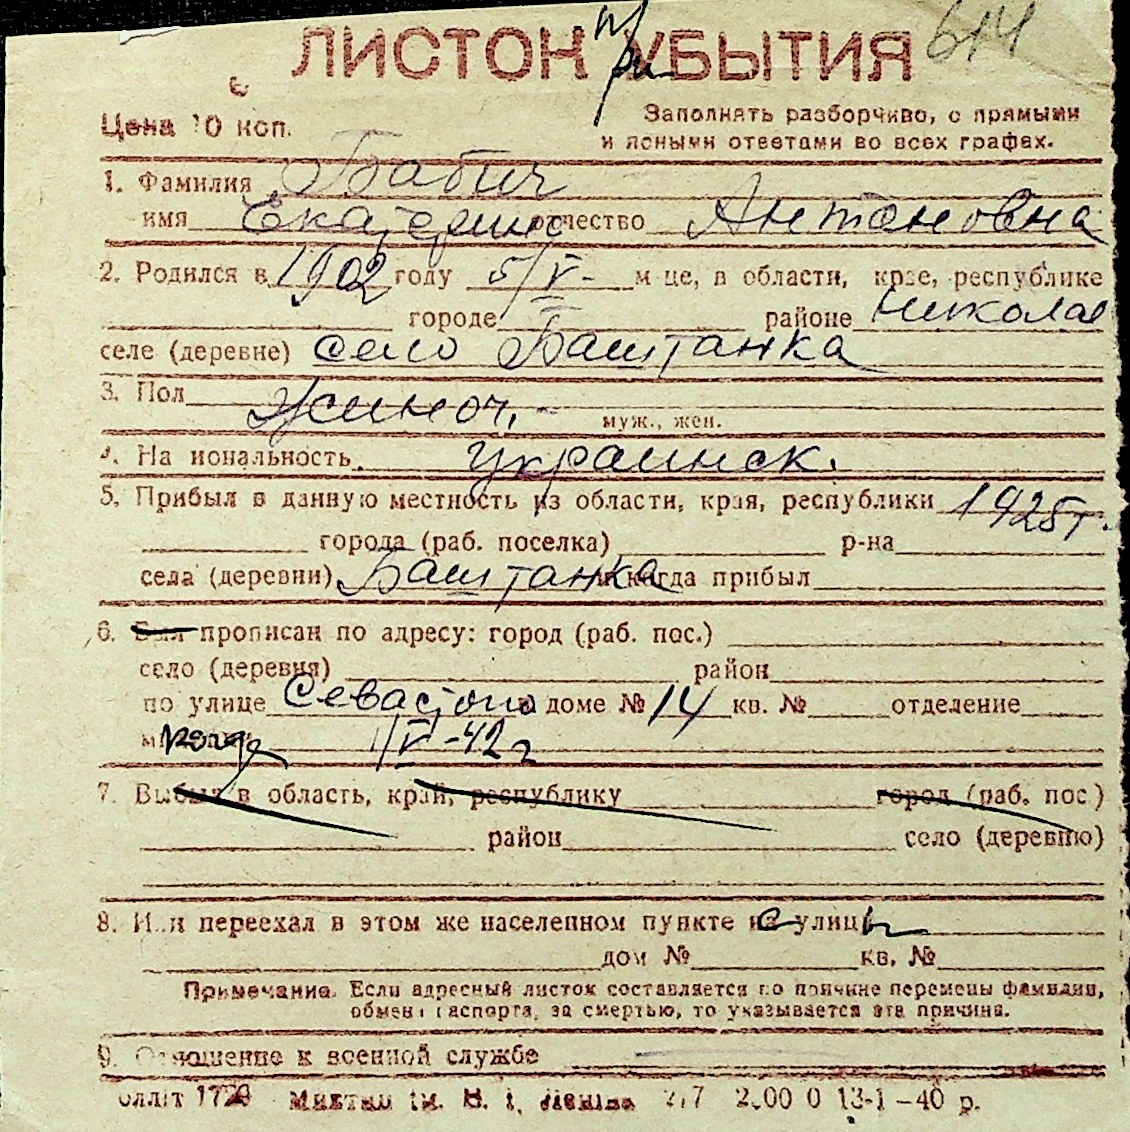 ЛИСТОК УБЫТИЯ 614
при
Цена 10 коп.
Заполнять разборчиво, с прямыми
и ясными ответами во всех графах.
1. Фамилия Бабич
имя Екатерина отчество Антоновна
2. Родился в 1902 году 5/V- м-це, в области, крае, республике
городе районе Николаев
селе (деревне) село Баштанка
3. Пол Жиноч.-
муж., жен.
4. Национальность украинск.
5. Прибыл в данную местность из области, края, республики 1925 г.
города (раб. поселка) р-на
села (деревни) Баштанка и когда прибыл
6. Был прописан по адресу: город (раб. пос.)
село (деревня) район
по улице Севастоп доме № 14 кв. № отделение
когда 1/IV-42 г
7. Выбыл в область, край, республику город (раб. пос.)
район село (деревню)
8. Или переехал в этом же населенном пункте с улицы
дом № кв. №
Примечание. Если адресный листок составляется по причине перемены фамилии,
обмена паспорта, за смертью, то указывается эта причина.
9. Отношение к военной службе
им. В. І. Леніна 13-1-40 р.